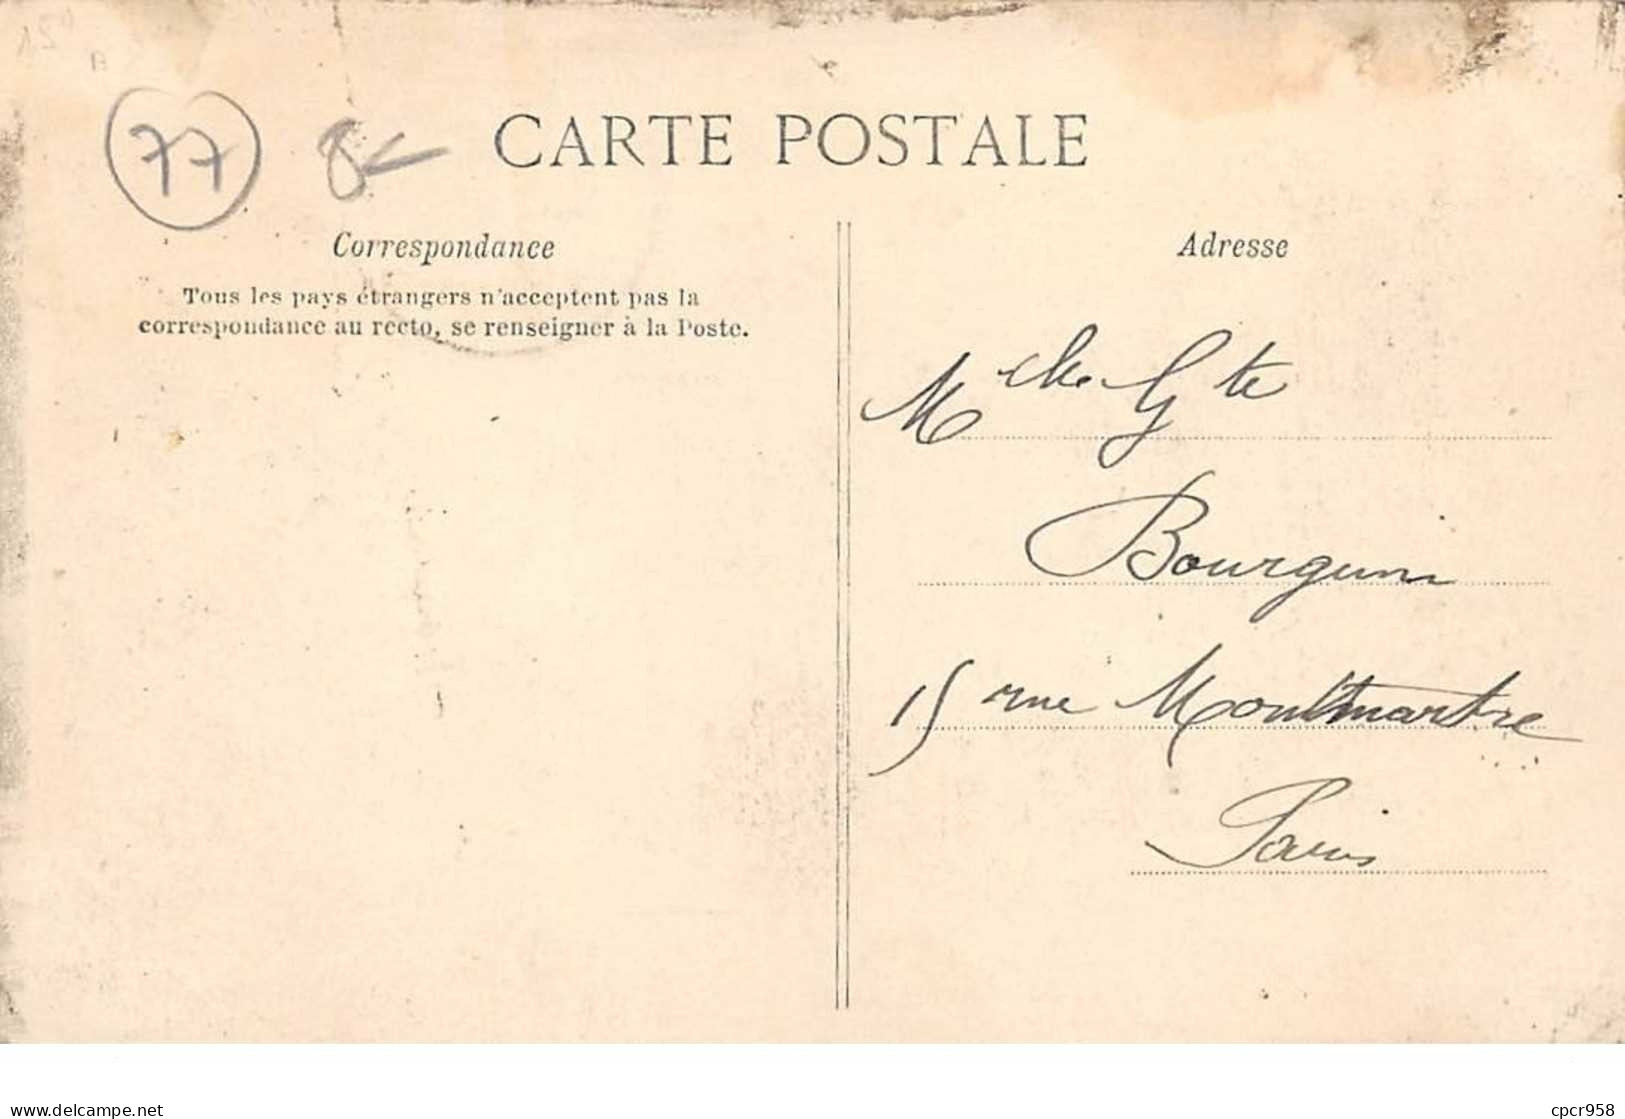 15
77 8
CARTE POSTALE
Correspondance
Tous les pays étrangers n'acceptent pas la
correspondance au recto, se renseigner à la Poste.
Adresse
Melle Gte
Bourguin
15 rue Montmartre
Paris
delcampe.net
cpcr958